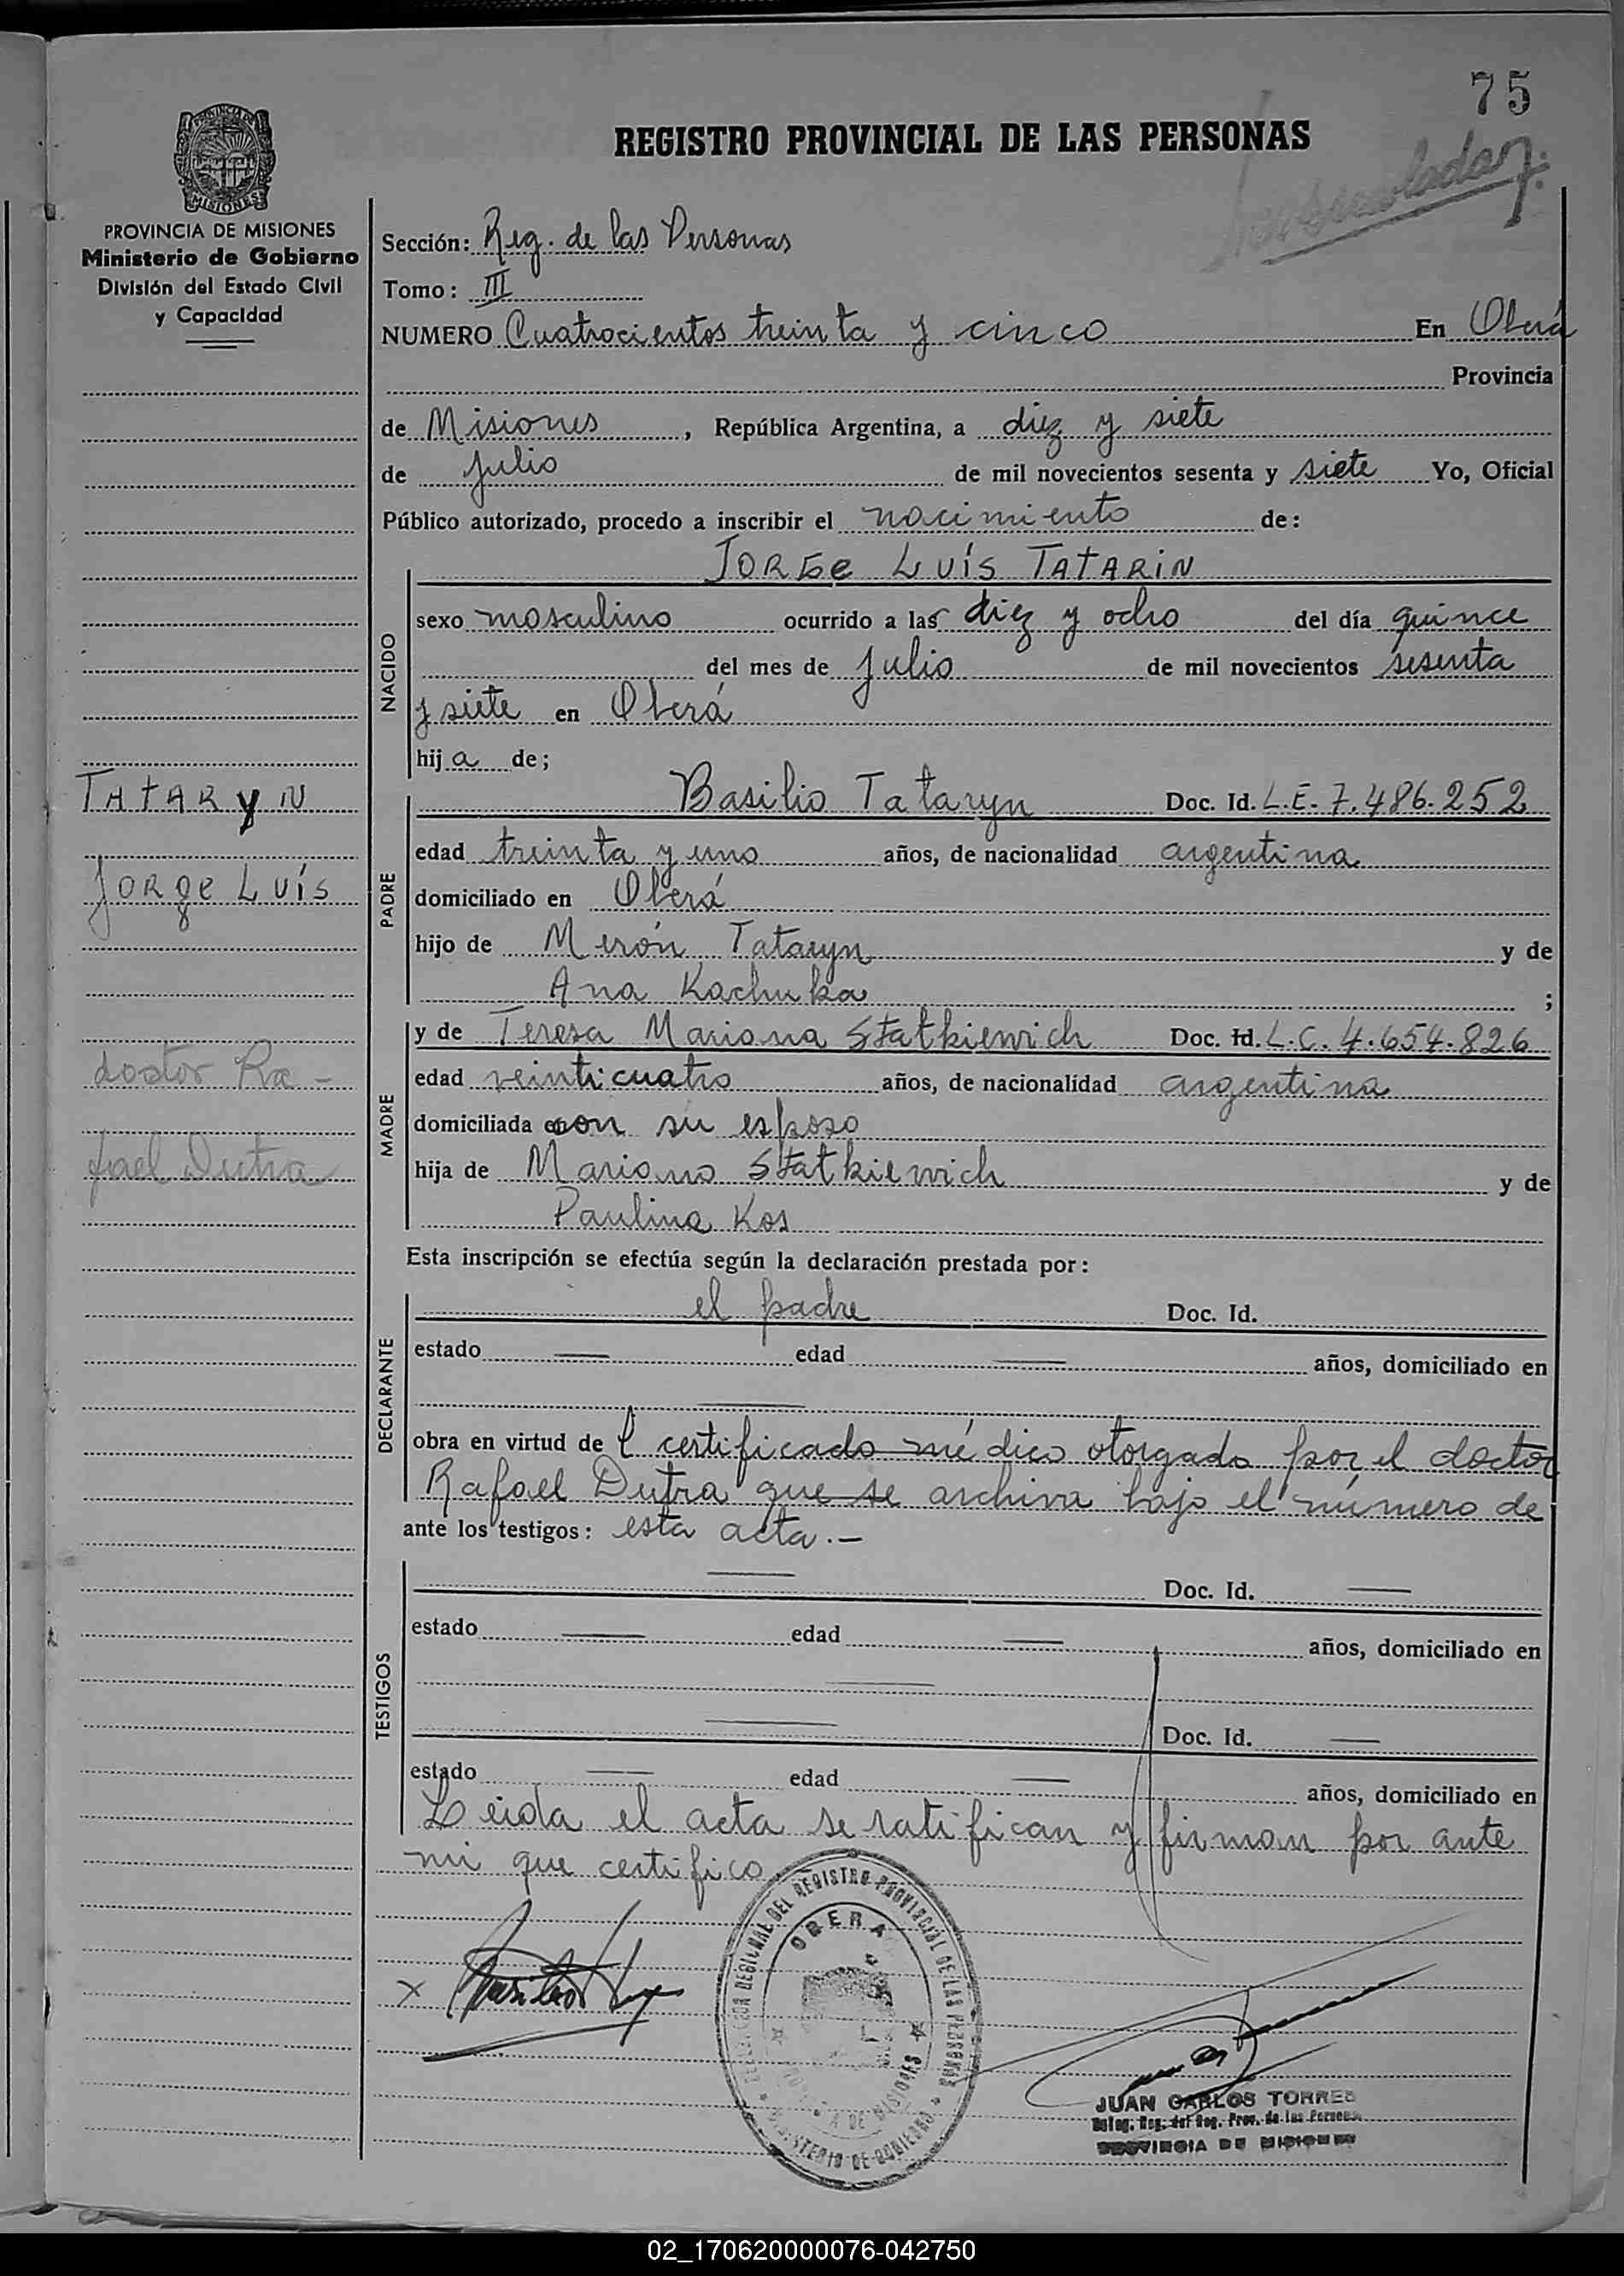 75
REGISTRO PROVINCIAL DE LAS PERSONAS
MISIONES
PROVINCIA DE MISIONES
Ministerio de Gobierno
División del Estado Civil
y Capacidad
Sección: Reg. de las Personas
Tomo: III
NUMERO Cuatrocientos treinta y cinco En Oberá
Provincia
de Misiones, República Argentina, a diez y siete
de julio de mil novecientos sesenta y siete Yo, Oficial
Público autorizado, procedo a inscribir el nacimiento de:
JORGe LUÍS TATARIN
NACIDO
sexo masculino ocurrido a las diez y ocho del día quince
del mes de julio de mil novecientos sesenta
y siete en Oberá
hija de;
TATARyN
Jorge Luís
doctor Ra-
fael Dutra
PADRE
Basilio Tataryn Doc. Id. L.E. 7.486.252
edad treinta y uno años, de nacionalidad argentina
domiciliado en Oberá
hijo de Merón Tataryn y de
Ana Kachuka ;
MADRE
y de Teresa Mariana Statkiewich Doc. Id. L.C. 4.654.826
edad veinticuatro años, de nacionalidad argentina
domiciliada con su esposo
hija de Mariano Statkiewich y de
Paulina Kos
Esta inscripción se efectúa según la declaración prestada por:
DECLARANTE
el padre Doc. Id.
estado — edad — años, domiciliado en
—
obra en virtud del certificado médico otorgado por el doctor
Rafael Dutra que se archiva bajo el número de
ante los testigos: esta acta.-
TESTIGOS
— Doc. Id. —
estado — edad — años, domiciliado en
—
— Doc. Id. —
estado — edad — años, domiciliado en
Leida el acta se ratifican y firman por ante
mi que certifico
x
REGIONAL DEL REGISTRO PROVINCIAL DE LAS PERSONAS
OBERA
MISIONES
MINISTERIO DE GOBIERNO
JUAN CARLOS TORRES
Deleg. Reg. del Reg. Prov. de las Personas
PROVINCIA DE MISIONES
02_170620000076-042750